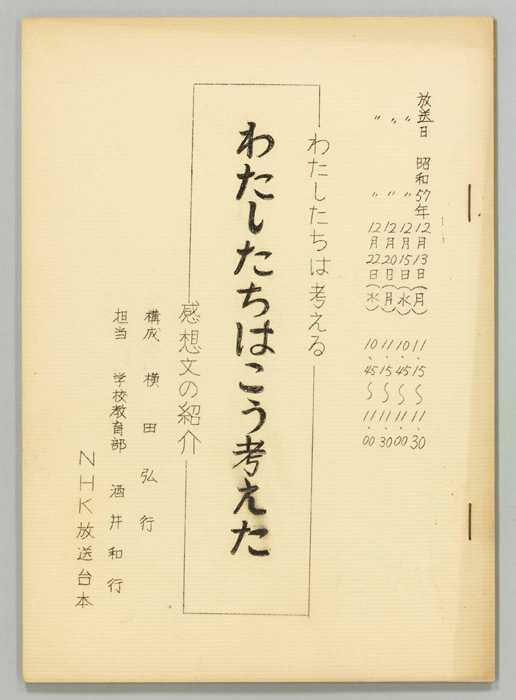 放送日 昭和57年12月13日(月) 11、15〜11、30
〃 〃 12月15日(水) 10、45〜11、00
〃 〃 12月20日(月) 11、15〜11、30
〃 〃 12月22日(水) 10、45〜11、00
わたしたちは考える
わたしたちはこう考えた
感想文の紹介
構成 横田弘行
担当 学校教育部 酒井和行
NHK放送台本